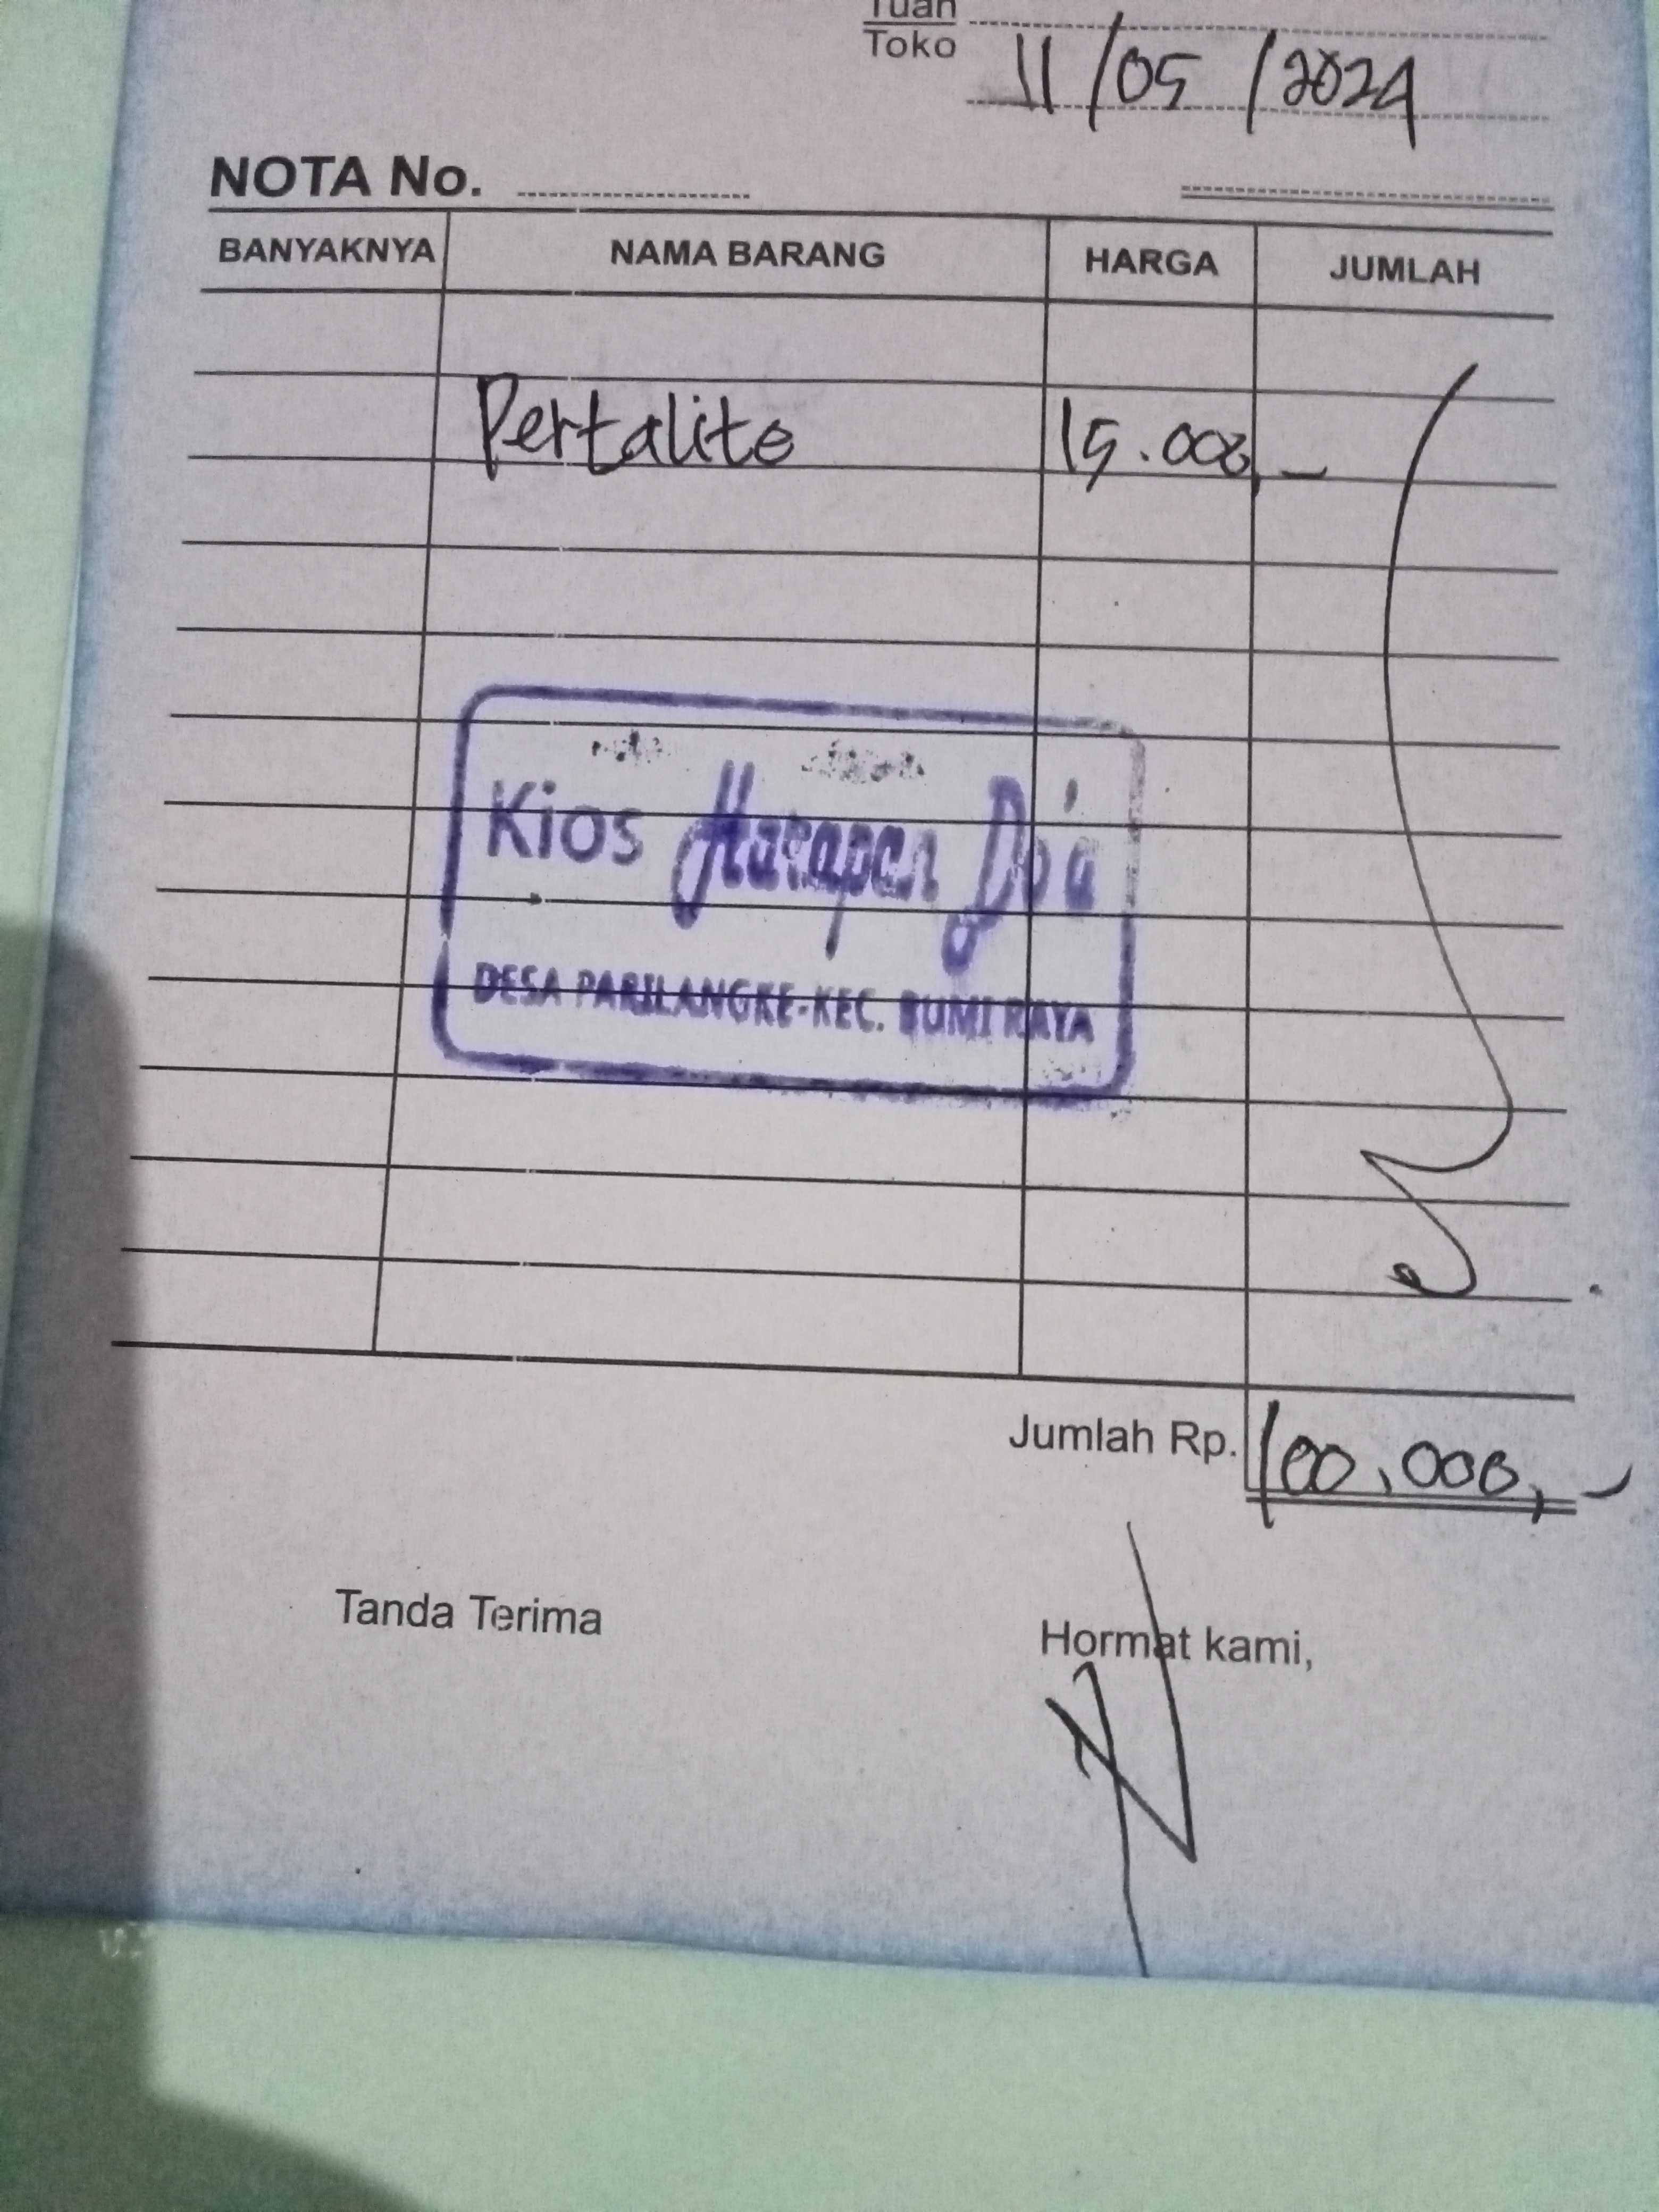 Tuan
Toko
11/05/2024
NOTA No.
BANYAKNYA NAMA BARANG HARGA JUMLAH
Pertalite 15.000,-
Kios Harapan Do'a
DESA PARILANGKE-KEC. BUMI RAYA
Jumlah Rp. 100.000,-
Tanda Terima
Hormat kami,